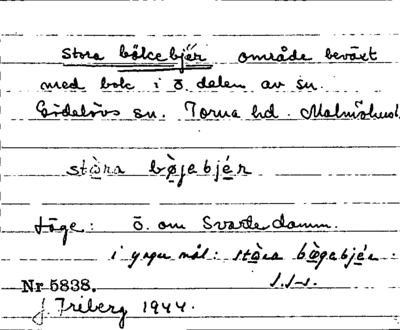 Stora bökebjér område beväxt
med bok i ö. delen av sn.
Gödelövs sn. Torna hd. Malmöhus l.
stàra bø̀jabjér
Läge: ö. om Svarte damm.
i yngre mål: stàra bø̀gebjér.
Nr 5838.
J. Friberg 1944.